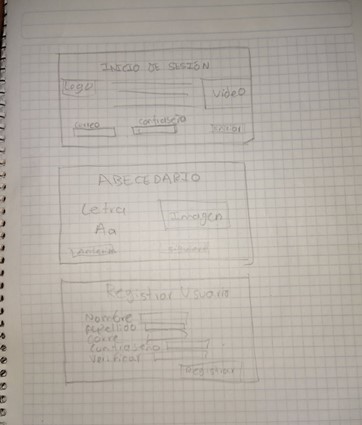 INICIO DE SESIÓN
Logo
Video
correo
contraseña
Iniciar
ABECEDARIO
Letra
Imagen
Aa
siguiente
Registrar Usuario
Nombre
Apellido
Correo
Contraseña
Verificar
Registrar